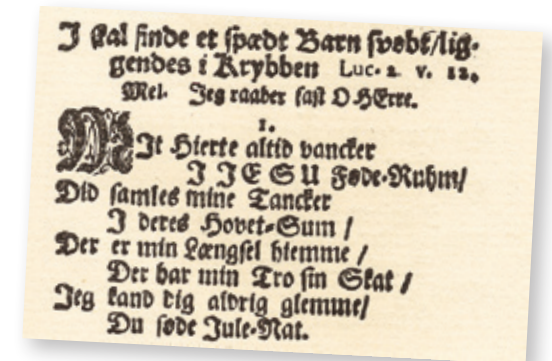 I skal finde et spædt Barn svøbt/lig-
gendes i Krybben Luc. 2. v. 12.
Mel. Jeg raaber fast O HErre.
1.
MIt Hierte altid vancker
I JESU Føde-Ruhm/
Did samles mine Tancker
I deres Hovet-Sum /
Der er min Længsel hiemme /
Der har min Tro sin Skat /
Jeg kand dig aldrig glemme/
Du søde Jule-Nat.